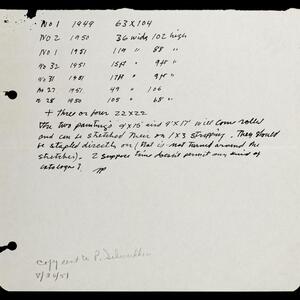 No 1 1949 63 x 104
No 2 1950 36 wide, 102 high
No 1 1951 114 " 88 "
No 32 1951 15ft " 9ft "
No 31 1951 17ft " 9ft "
No 27 1951 49 " 106
No 28 1950 105 " 68 "
+ three or four 22x22
The two paintings 9'x15' and 9'x17' will come rolled
and can be stretched there on 1x3 stripping. They should
be stapled directly on (that is not turned around the
stretcher). I suppose time doesn't permit any kind of
catalogue?
copy sent to P.
8/30/51